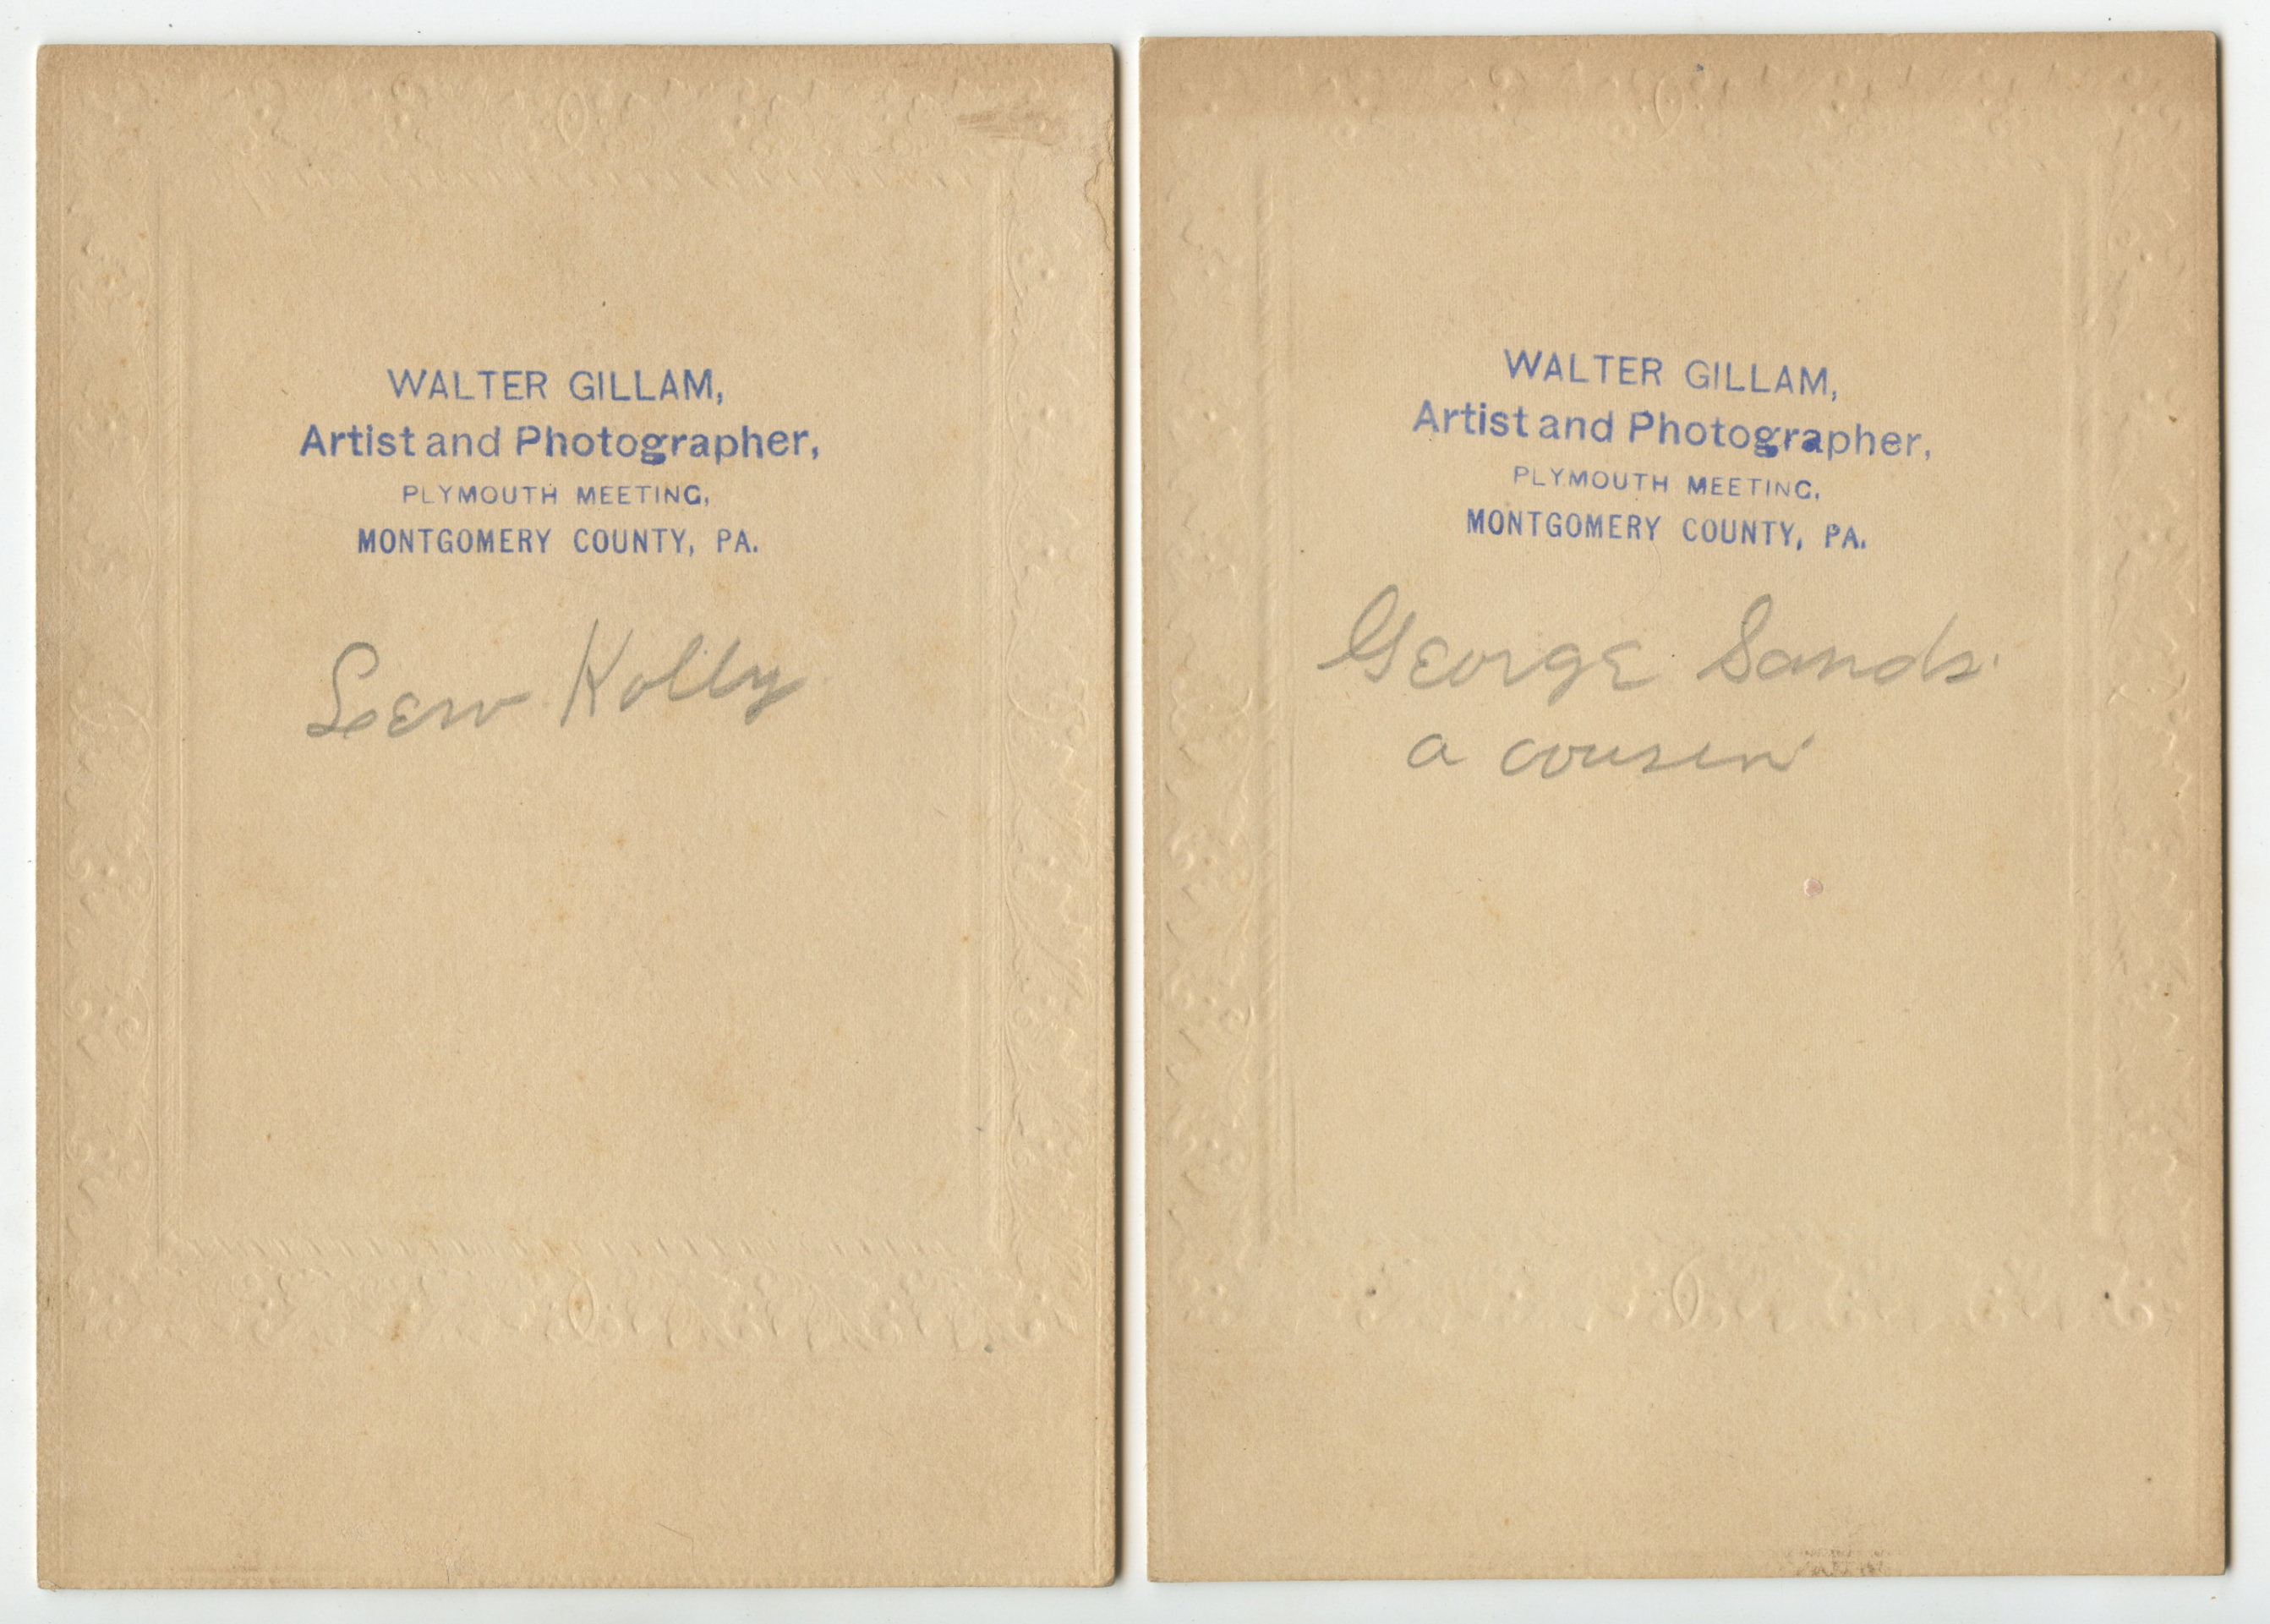 WALTER GILLAM,
Artist and Photographer,
PLYMOUTH MEETING,
MONTGOMERY COUNTY, PA.
Lew Kolly
WALTER GILLAM,
Artist and Photographer,
PLYMOUTH MEETING,
MONTGOMERY COUNTY, PA.
George Sands.
a cousin